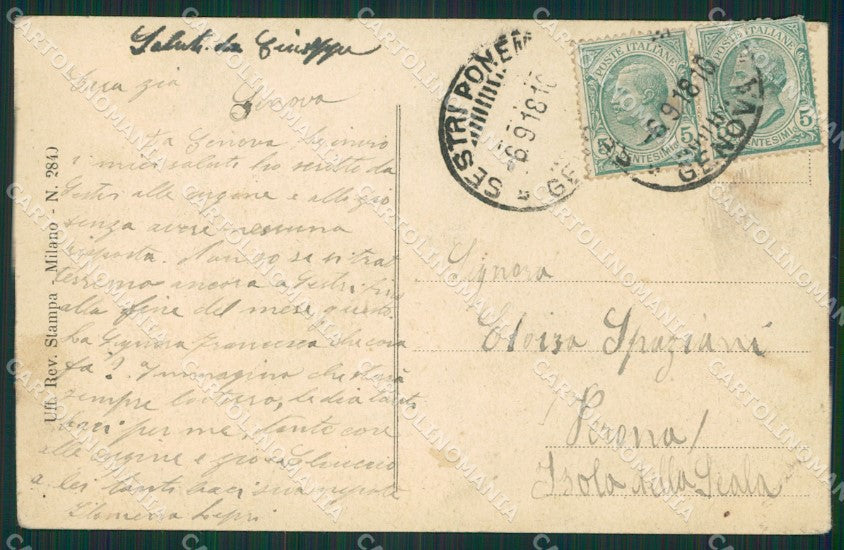 Saluti da Giuseppe
Cara zia
Genova
Da Genova, le invio
i miei saluti ho scritto da
Sestri alle cugine e allo zio
senza avere nessuna
risposta.
terremo ancora a Sestri fin
alla fine del mese questo.
La Signora Francesca che cosa
fa? Immagino che sarà
sempre le dia tanti
baci per me, tante cose
alle cugine e zio
a lei tanti baci sua nipote
Uff. Rev. Stampa - Milano - N. 284)
SESTRI PONEN
6.9.18-10
GE
POSTE ITALIANE
5
CENTESIMI
6.9.18-10
GENOVA
POSTE ITALIANE
5
CENTESIMI
Signora
Eloisa Spaziani
Verona
Isola della Scala
CARTOLINOMANIA